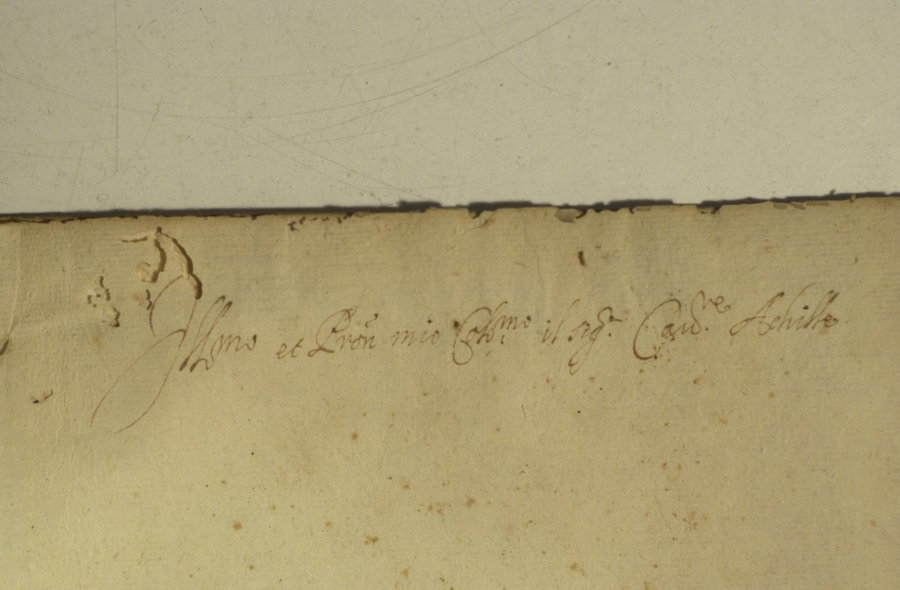 Illmo et Pron mio Colmo il sigr Cavre Achille